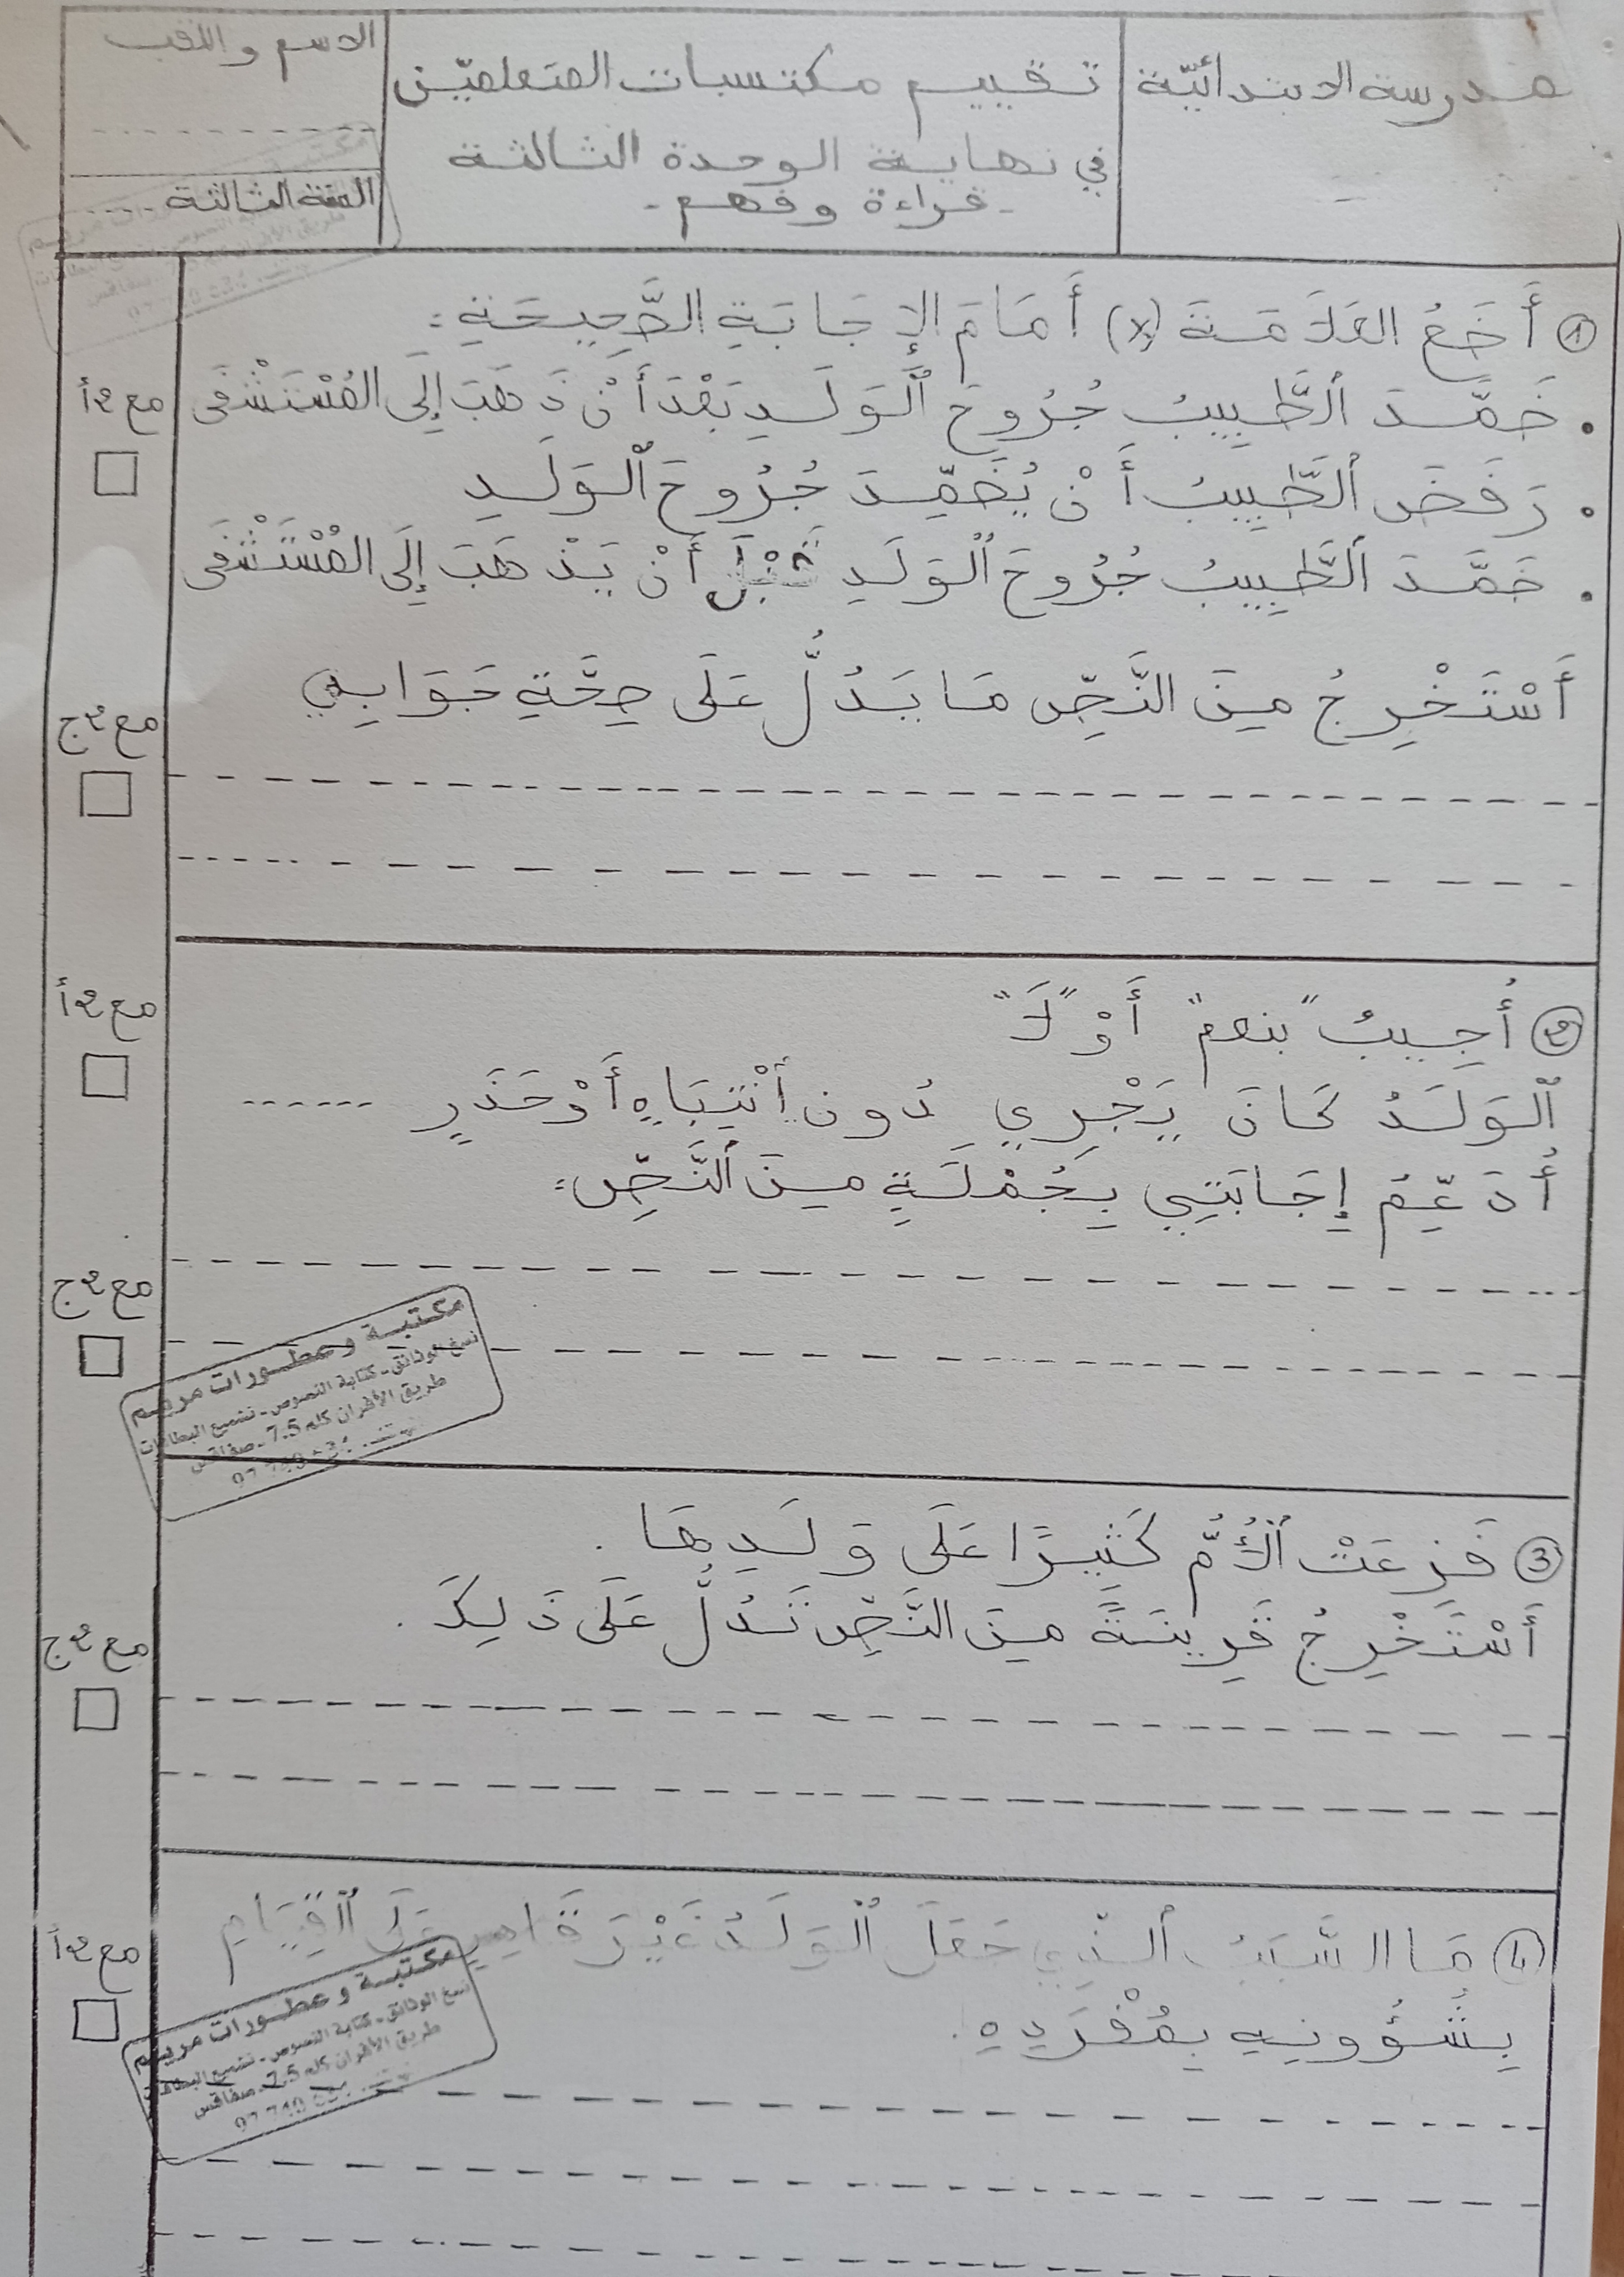 مدرسة الابتدائيّة
تقييم مكتسبات المتعلمين
في نهاية الوحدة الثالثة
- قراءة وفهم -
الاسم واللقب
السنة الثالثة
① أَضَعُ العَلاَمَةَ (x) أَمَامَ الإِجَابَةِ الصَّحِيحَةِ :
• ضَمَّدَ ٱلطَّبِيبُ جُرُوحَ ٱلْوَلَدِ بَعْدَ أَنْ ذَهَبَ إِلَى المُسْتَشْفَى
مع 2 أ
• رَفَضَ ٱلطَّبِيبُ أَنْ يُضَمِّدَ جُرُوحَ ٱلْوَلَدِ
• ضَمَّدَ ٱلطَّبِيبُ جُرُوحَ ٱلْوَلَدِ قَبْلَ أَنْ يَذْهَبَ إِلَى المُسْتَشْفَى
أَسْتَخْرِجُ مِنَ النَّصِّ مَا يَدُلُّ عَلَى صِحَّةِ جَوَابِي
مع 2 ج
② أُجِيبُ "بنعم" أَوْ "لَا"
مع 2 أ
ٱلْوَلَدُ كَانَ يَجْرِي دُونِ ٱنْتِبَاهٍ أَوْ حَذَرٍ ......
أُدَعِّمُ إِجَابَتِي بِجُمْلَةٍ مِنَ ٱلنَّصِّ:
مع 2 ج
مكتبة وعطورات مريم
نسخ الوثائق - كتابة النصوص - تشميع البطاقات
طريق الأفران كلم 7.5 - صفاقس
③ فَزِعَتْ ٱلْأُمُّ كَثِيرًا عَلَى وَلَدِهَا .
أَسْتَخْرِجُ قَرِينَةً مِنَ النَّصِّ تَدُلُّ عَلَى ذَلِكَ .
مع 2 ج
④ مَا السَّبَبُ ٱلَّذِي جَعَلَ ٱلْوَلَدَ غَيْرَ قَادِرٍ عَلَى ٱلْقِيَامِ
مع 2 أ
بِشُؤُونِهِ بِمُفْرَدِهِ .
مكتبة وعطورات مريم
نسخ الوثائق - كتابة النصوص - تشميع البطاقات
طريق الأفران كلم 7.5 - صفاقس